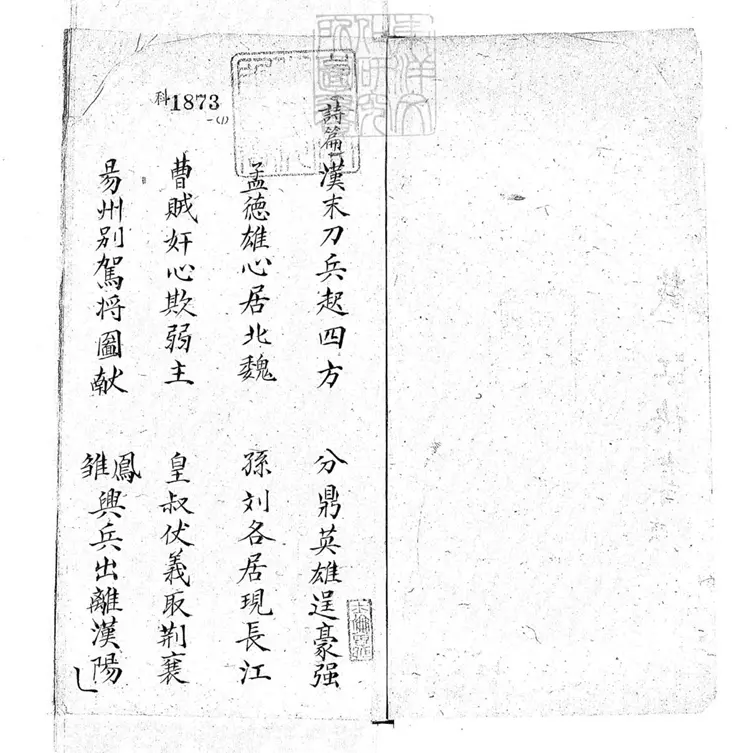 科1873
-(1)
詩篇
漢末刀兵起四方 分鼎英雄逞豪强
孟德雄心居北魏 孫刘各居現長江
曹賊奸心欺弱主 皇叔伏義取荆襄
易州别駕将圖献 鳳雏興兵出離漢陽